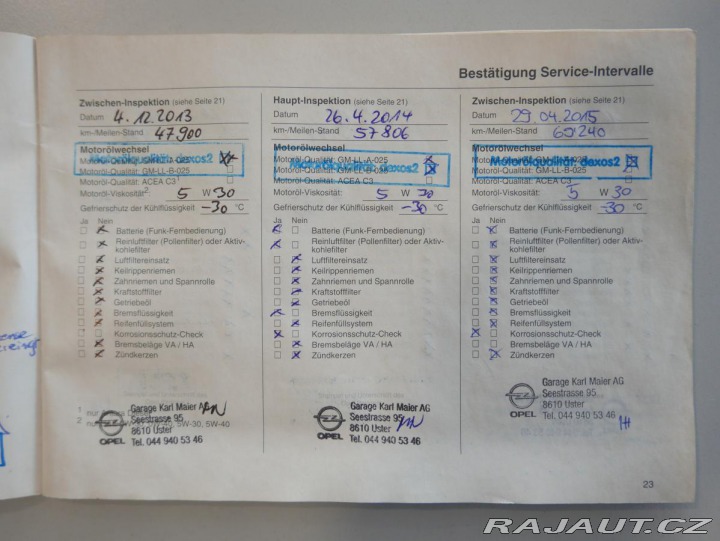 Bestätigung Service-Intervalle
Zwischen-Inspektion (siehe Seite 21)
Datum 4.12.2013
km-/Meilen-Stand 47900
Motorölwechsel
Motorölqualität: dexos2
Motoröl-Qualität: GM-LL-B-025
Motoröl-Qualität: ACEA C3
Motoröl-Viskosität: 5 W 30
Gefrierschutz der Kühlflüssigkeit -30 °C
Ja Nein
Batterie (Funk-Fernbedienung)
Reinluftfilter (Pollenfilter) oder Aktiv-
kohlefilter
Luftfiltereinsatz
Keilrippenriemen
Zahnriemen und Spannrolle
Kraftstofffilter
Getriebeöl
Bremsflüssigkeit
Reifenfüllsystem
Korrosionsschutz-Check
Bremsbeläge VA / HA
Zündkerzen
1 nur
2 5W-30, 5W-40
OPEL
Garage Karl Maier AG
Seestrasse 95
8610 Uster
Tel. 044 940 53 46
Haupt-Inspektion (siehe Seite 21)
Datum 26.4.2014
km-/Meilen-Stand 57806
Motorölwechsel
Motoröl-Qualität: GM-LL-A-025
Motorölqualität: dexos2
Motoröl-Qualität: GM-LL-B-025
Motoröl-Qualität: ACEA C3
Motoröl-Viskosität: 5 W 30
Gefrierschutz der Kühlflüssigkeit -30 °C
Ja Nein
Batterie (Funk-Fernbedienung)
Reinluftfilter (Pollenfilter) oder Aktiv-
kohlefilter
Luftfiltereinsatz
Keilrippenriemen
Zahnriemen und Spannrolle
Kraftstofffilter
Getriebeöl
Bremsflüssigkeit
Reifenfüllsystem
Korrosionsschutz-Check
Bremsbeläge VA / HA
Zündkerzen
OPEL
Garage Karl Maier AG
Seestrasse 95
8610 Uster
Tel. 044 940 53 46
Zwischen-Inspektion (siehe Seite 21)
Datum 29.04.2015
km-/Meilen-Stand 69240
Motorölwechsel
Motorölqualität: dexos2
Motoröl-Qualität: GM-LL-B-025
Motoröl-Qualität: ACEA C3
Motoröl-Viskosität: 5 W 30
Gefrierschutz der Kühlflüssigkeit -30 °C
Ja Nein
Batterie (Funk-Fernbedienung)
Reinluftfilter (Pollenfilter) oder Aktiv-
kohlefilter
Luftfiltereinsatz
Keilrippenriemen
Zahnriemen und Spannrolle
Kraftstofffilter
Getriebeöl
Bremsflüssigkeit
Reifenfüllsystem
Korrosionsschutz-Check
Bremsbeläge VA / HA
Zündkerzen
OPEL
Garage Karl Maier AG
Seestrasse 95
8610 Uster
Tel. 044 940 53 46
23
RAJAUT.CZ